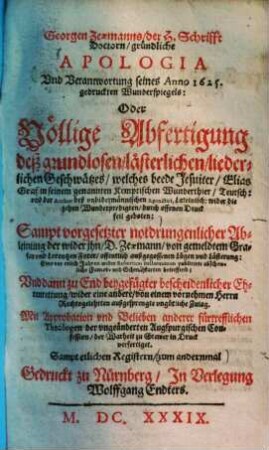 Georgen Zeæmanns/der H. Schrifft
Doctorn/gründliche
APOLOGIA
Vnd Verantwortung seines Anno 1625.
gedruckten Wunderspiegels:
Oder
Völlige Abfertigung
deß grundlosen/lästerlichen/lieder-
lichen Geschwätzes/welches beede Jesuiter/Elias
Graf in seinem genannten Kemptischen Wunderthier/Teutsch:
Lateinisch: wider die
zehen Wunderpredigten/durch offenen Druck
feil geboten:
Sampt vorgesetzter nothdrungenlicher Ab-
leinung der wider jhn/D. Zeæmann/von gemeldtem Gra-
fen vnd Lorentzen Forer/offentlich außgegossenen Lügen vnd Lästerung:
betreffend:
Vnd dann zu End beygefügter bescheidenlicher Eh-
renrettung wider eine andere/von einem vornemen Herrn
Rechtsgelehrten außgesprengte vngleiche Zulag.
Mit Approbation vnd Belieben anderer fürtrefflichen
Theologen der vngeänderten Augspurgischen Con-
fession/der Warheit zu Stewer in Druck
verfertiget.
Sampt etlichen Registern/zum andernmal
Gedruckt zu Nürnberg/In Verlegung
Wolffgang Endters.
M. DC. XXXIX.